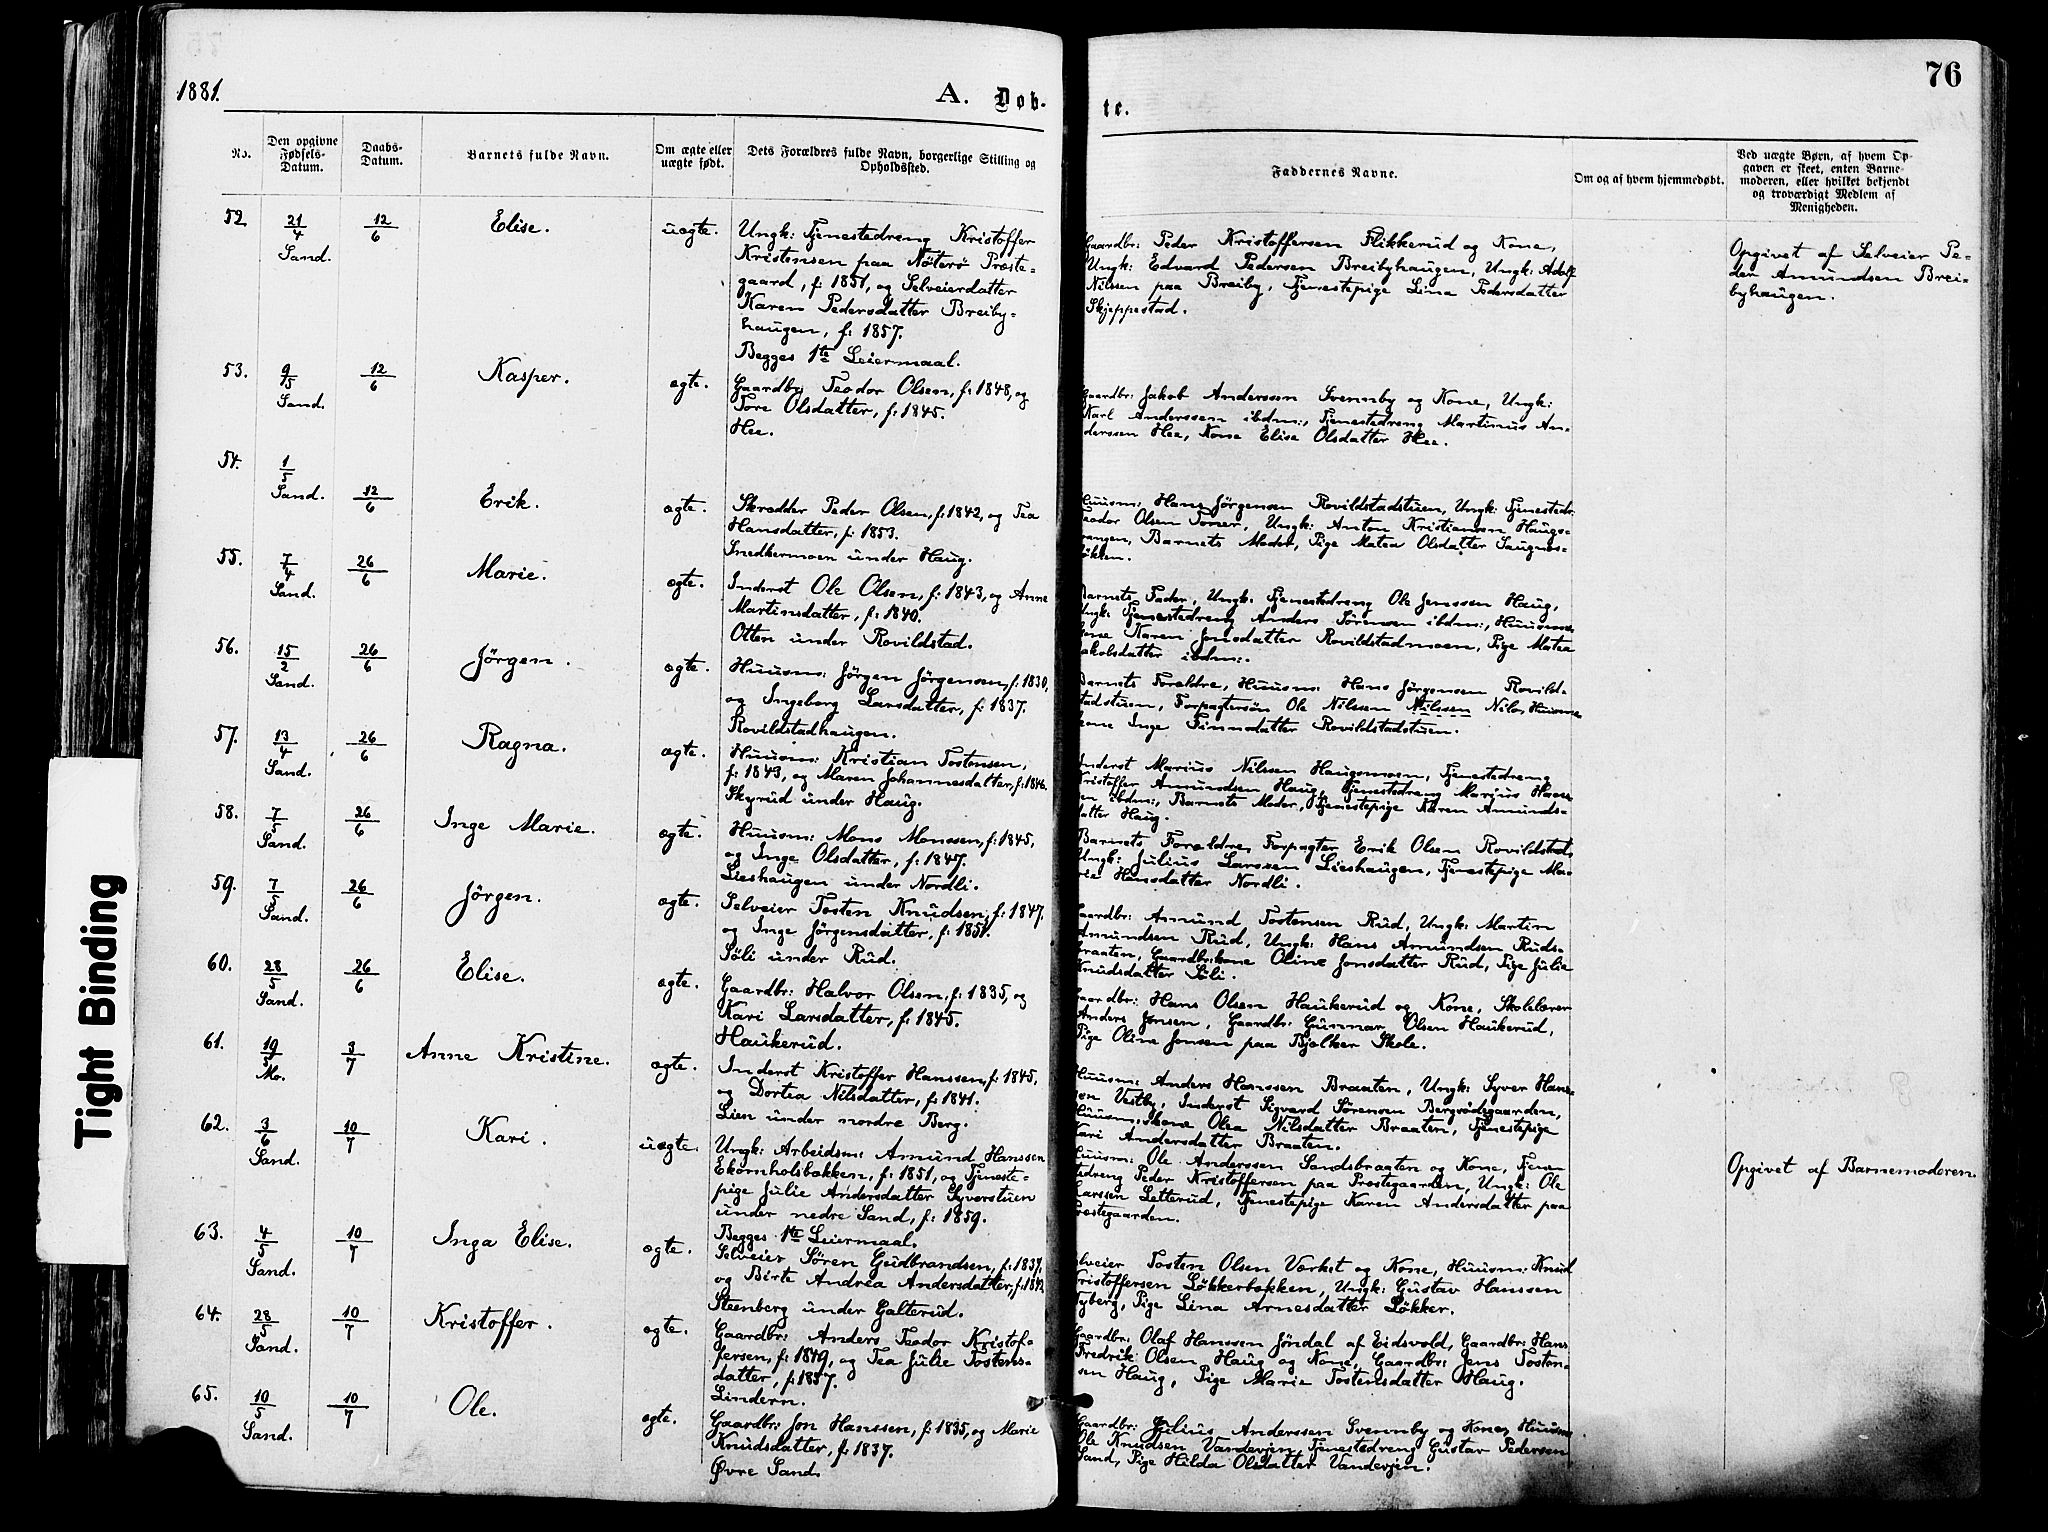 76
1881.
A. Døb-
te.
No.
Den opgivne
Fødsels-
Datum.
Daabs-
Datum.
Barnets fulde Navn.
Om ægte eller
uægte født.
Dets Forældres fulde Navn, borgerlige Stilling og
Opholdssted.
Faddernes Navne.
Om og af hvem hjemmedøbt.
Ved uægte Børn, af hvem Op-
gaven er skeet, enten Barne-
moderen, eller hvilket bekjendt
og troværdigt Medlem af
Menigheden.
52
21/4
Sand.
12/6
Elise.
uægte.
Ungk: Tjenestedreng Kristoffer
Kristensen paa Nøterø Præste-
gaard, f: 1851, og Selveierdatter
Karen Pedersdatter Breiby-
haugen, f: 1857.
Begges 1te Leiermaal.
Gaardbr: Peder Kristoffersen Flikkerud og Kone,
Ungk: Edvard Pedersen Breibyhaugen, Ungk: Adolf
Nilssen paa Breiby, Tjenestepige Lina Pedersdatter
Skjeppestad.
Opgivet af Selveier Pe-
der Amundsen Brei-
byhaugen.
53.
9/5
Sand.
12/6
Kasper.
ægte.
Gaardbr: Teodor Olsen, f: 1848, og
Tore Olsdatter, f: 1845.
Hee.
Gaardbr: Jakob Anderssen Svennby og Kone, Ungk:
Karl Anderssen ibdm:, Tjenestedreng Martinus An-
derssen Hee, Kone Elise Olsdatter Hee.
54.
1/5
Sand.
12/6
Erik.
ægte.
Skrædder Peder Olsen, f: 1842, og Tea
Hansdatter, f: 1853.
Snedkermoen under Haug.
Huusm: Hans Jørgensen Rovildstadstuen, Ungk: Tjenestedr:
Teodor Olsen Toner, Ungk: Anton Kristiansen Haugs-
vangen, Barnets Moder, Pige Matea Olsdatter Saugnes-
løkken.
55.
7/4
Sand.
26/6
Marie.
ægte.
Inderst Ole Olsen, f: 1843, og Anne
Martinsdatter, f: 1840.
Otten under Rovildstad.
Barnets Fader, Ungk: Tjenestedreng Ole Jenssen Haug,
Ungk: Tjenestedreng Anders Sørensen ibdm:, Huusmands
Kone Karen Jonsdatter Rovildstadmoen, Pige Matea
Jakobsdatter ibdm:.
56.
15/2
Sand.
26/6
Jørgen.
ægte.
Huusm: Jørgen Jørgensen, f: 1830,
og Ingeborg Larsdatter, f: 1837.
Rovildstadhaugen.
Barnets Forældre, Huusm: Hans Jørgensen Rovild-
stadstuen, Forpagtersøn Ole Nilssen Nilssen Nilo, Huusm:
kone Inge Finnsdatter Rovildstadstuen.
57.
13/4
Sand.
26/6
Ragna.
ægte.
Huusm: Kristian Tostensen,
f: 1843, og Maren Johannesdatter, f: 1846.
Skyrud under Haug.
Inderst Marius Nilssen Haugsmoen, Tjenestedreng
Kristoffer Amundsen Haug, Tjenestedreng Marius Hans-
sen ibdm:, Barnets Moder, Tjenestepige Karen Amunds-
datter Haug.
58.
7/5
Sand.
26/6
Inge Marie.
ægte.
Huusm: Mons Monssen, f: 1845,
og Inge Olsdatter, f: 1847.
Lieshaugen under Nordli.
Barnets Forældre, Forpagter Erik Olsen Rovildstad,
Ungk: Julius Larssen Lieshaugen, Tjenestepige Ma-
rie Hansdatter Nordli.
59.
7/5
Sand.
26/6
Jørgen.
ægte.
Selveier Tosten Knudsen, f: 1847.
og Inge Jørgensdatter, f: 1851.
Søli under Rud.
Gaardbr: Amund Tostensen Rud, Ungk: Martin
Amundsen Rud, Ungk: Hans Amundsen Ruds-
braaten, Gaardbr:kone Oline Jonsdatter Rud, Pige Julie
Knudsdatter Søli.
60.
28/5
Sand.
26/6
Elise.
ægte.
Gaardbr: Halvor Olsen, f: 1835, og
Kari Larsdatter, f: 1845.
Haukerud.
Gaardbr: Hans Olsen Haukerud og Kone, Skolelærer
Anders Jensen, Gaardbr: Gunnar Olsen Haukerud,
Pige Oline Jensen paa Bjølker Skole.
61.
19/5
Mo.
3/7
Anne Kristine.
ægte.
Inderst Kristoffer Hanssen, f: 1845,
og Dortea Nilsdatter, f: 1841.
Lien under nordre Berg.
Huusm: Anders Hanssen Braaten, Ungk: Syver Hans-
sen Vestby, Inderst Sigvard Sørensen Bergsødegaarden,
Huusm:skone Olea Nilsdatter Braaten, Tjenestepige
Kari Andersdatter Braaten.
62.
3/6
Sand.
10/7
Kari.
uægte.
Ungk: Arbeidsm: Amund Hanssen
Ekornholsbakken, f: 1851, og Tjeneste-
pige Julie Andersdatter Syverstuen
under nedre Sand, f: 1859.
Begges 1te Leiermaal.
Huusm: Ole Anderssen Sandsbraaten og Kone, Tjene-
stedreng Peder Kristoffersen paa Præstegaarden, Ungk: Ole
Larssen Letterud, Tjenestepige Karen Andersdatter paa
Præstegaarden.
Opgivet af Barnemoderen.
63.
4/5
Sand.
10/7
Inga Elise.
ægte.
Selveier Søren Gudbrandsen, f: 1837.
og Birte Andrea Andersdatter, f: 1842.
Steenberg under Galterud.
Selveier Tosten Olsen Vorket og Kone, Huusm: Knud
Kristoffersen Løkkerbakken, Ungk: Gustav Hanssen
Nyberg, Pige Lina Arnesdatter Løkker.
64.
28/5
Sand.
10/7
Kristoffer.
ægte.
Gaardbr: Anders Teodor Kristof-
fersen, f: 1849, og Tea Julie Tostens-
datter, f: 1857.
Lindern.
Gaardbr: Olaf Hanssen Jøndal af Eidsvold, Gaardbr: Hans
Fredrik Olsen Haug og Kone, Gaardbr: Jens Tosten-
sen Haug, Pige Marie Tostensdatter Haug.
65.
10/5
Sand.
10/7
Ole.
ægte.
Gaardbr: Jon Hanssen, f: 1835, og Marie
Knudsdatter, f: 1837.
Øvre Sand.
Gaardbr: Julius Anderssen Svennby og Kone, Huusm:
Ole Knudsen Vandevjen, Tjenestedreng Gustav Pedersen
Sand, Pige Hilda Olsdatter Vandevjen.
Tight Binding